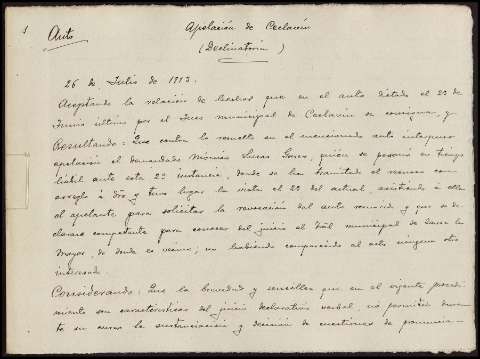 1
Auto
Apelación de Ceclavín
(Declinatoria)
26 de Julio de 1913.
Aceptando la relación de hechos que en el auto dictado el 20 de
Junio último por el Juez municipal de Ceclavín se consigna, y
Resultando: Que contra lo resuelto en el mencionado auto interpuso
apelación el demandado Moisés Lucas, quien se personó en tiempo
hábil ante esta 2ª instancia, donde se ha tramitado el recurso con
arreglo á dro y tuvo lugar la vista el 20 del actual, asistiendo á ella
el apelante para solicitar la revocación del auto recurrido y que se de-
clarase competente para conocer del juicio al Tribal municipal de
Mayor, de donde es vecino; no habiendo comparecido al acto ninguna otra
interesada.
Considerando: Que la brevedad y sencillez que en el vigente procedi-
miento son características del juicio declarativo verbal, no permiten duran-
te su curso la sustanciación y decisión de cuestiones de pronuncia-